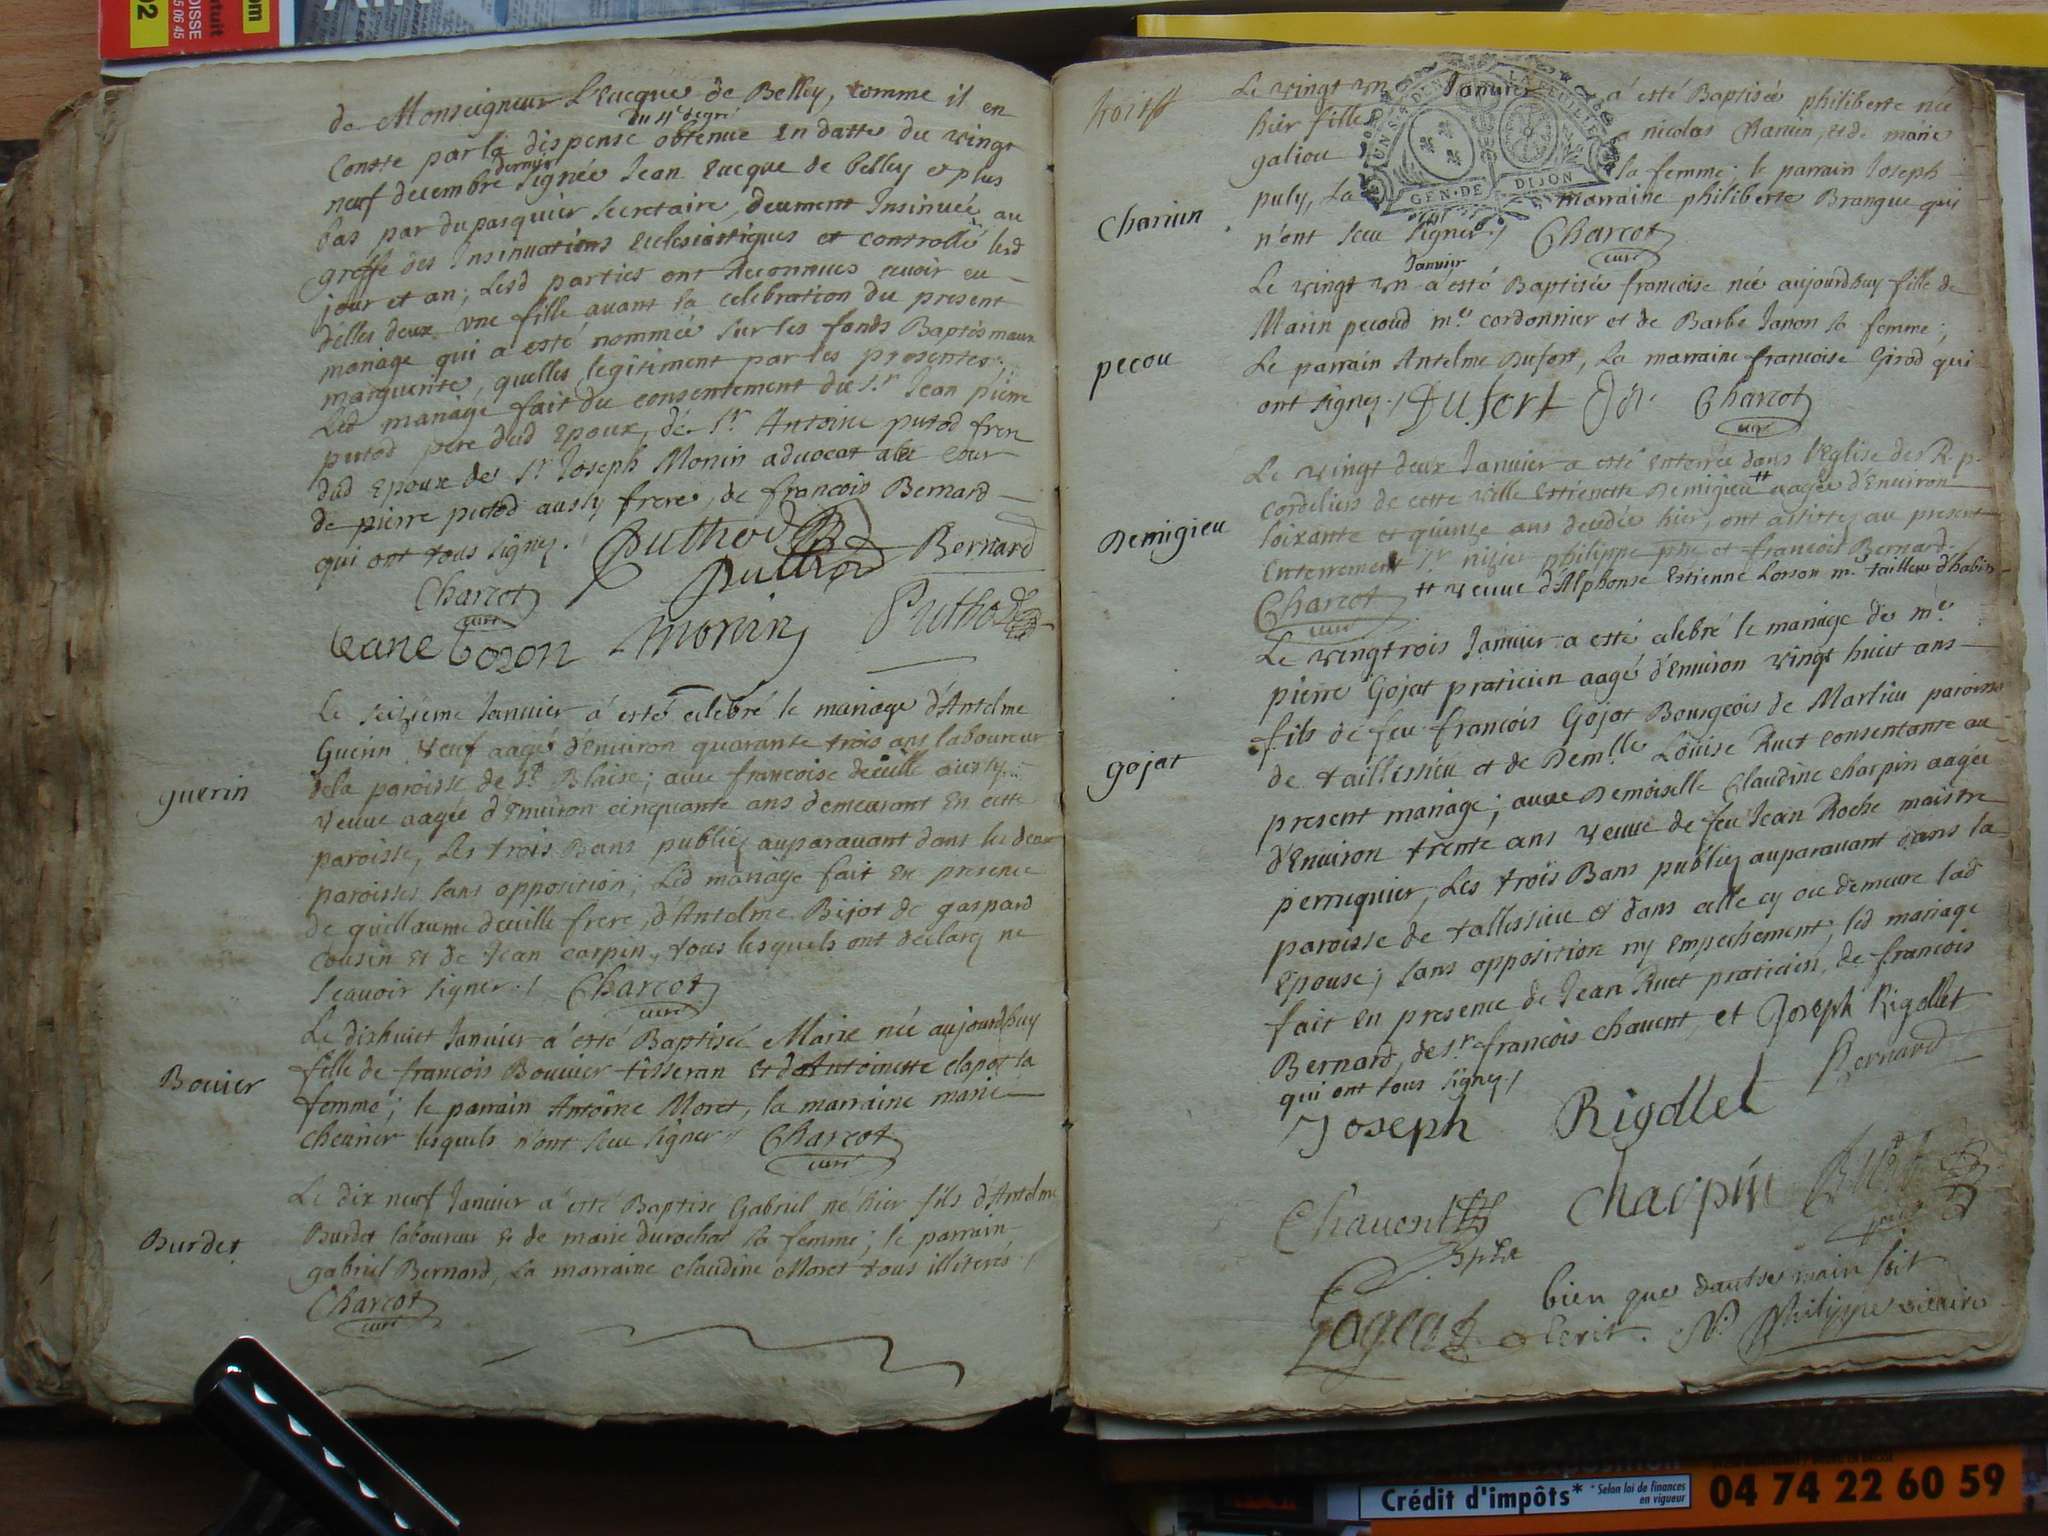 de Monseigneur L'Eucque de Belley, comme il en
du 4e degré
Conste par la dispense obtenue en datte du vingt
dernier
neuf decembre signée Jean Eucque de belley et plus
bas par dupasquier secretaire, deument Insinuée au
greffe des Insinuations Ecclesiastiques et controllé lesd
jour et an; Lesd parties ont Reconnues avoir eu
d'elles deux une fille avant la celebration du present
mariage qui a esté nommée sur les fonds Baptismaux
marguerite, quelles legitiment par les presentes;
Led mariage fait du consentement du Sr Jean pierre
putod pere dud Epoux, de Sr Antoine putod frere
dud Epoux de Sr Joseph Monin advocat a la Cour
de pierre putod aussy frere, de francois Bernard
qui ont tous signez.
Puthod Bernard
Charcot Puthod
curé
Monin Puthod
Le seizieme Janvier a esté celebré le mariage d'Antelme
Guerin veuf aagé d'Environ quarante trois ans laboureur
guerin
de la paroisse de St Blaise; avec francoise deville aussy
veuve aagée d'Environ cinquante ans demeurant En cette
paroisse, Les trois Bans publiez auparavant dans les deux
paroisses sans opposition; Led mariage fait En presence
de guillaume deville frere, d'Antelme Bijot de gaspard
cousin et de Jean carpin, tous lesquels ont declaré ne
scavoir signer./. Charcot
curé
Le dixhuict Janvier a esté Baptisée Marie née aujourdhuy
fille de francois Bouvier tisseran et d'Antoinette clapot sa
Bouier
femme; le parrain Antoine Moret, la marraine marie
chevrier lesquels n'ont sceu signer Charcot
curé
Le dix neuf Janvier a esté Baptisé Gabriel né hier fils d'Antelme
Burdet laboureur et de marie durochat sa femme; le parrain
Burdet
gabriel Bernard, La marraine claudine Moret tous illiterés
Charcot
curé
trois
Le vingt un Janvier a esté Baptisée philiberte née
hier fille nicolas et de marie
galiou sa femme; le parrain Joseph
GEN·DE DIJON
puly, La marraine philiberte Brangue qui
n'ont sceu signer./ Charcot
curé
Janvier
Le vingt un a esté Baptisée francoise née aujourdhuy fille de
Marin pecoud me cordonnier et de Barbe Janon sa femme;
pecou
Le parrain Antelme Dufort, La marraine francoise Girod qui
ont signez./ Dufort Charcot
curé
Le vingt deux Janvier a esté Enterrée dans l'Eglise des R. p.
Cordeliers de cette ville Estienette Demigieu++ aagée d'Environ
Demigieu
soixante et quinze ans decedée hier, ont assistez au present
Enterrement Sr nizier philippe pbre et francois Bernard.
Charcot ++ veuve d'Alphonse Estienne Losson me tailleur d'habits
curé
Le vingtrois Janvier a esté celebré le mariage de me
pierre Gojat praticien aagé d'Environ vingt huict ans
fils de feu francois Gojot Bourgeois de Marlieu paroisse
gojat
de taillissieu et de Demlle Louise Ruet consentante au
present mariage; avec Demoiselle Claudine charpin aagée
d'Environ trente ans veuve de feu Jean Roche maistre
perruquier, Les trois Bans publiez auparavant dans la
paroisse de tallissieu et dans celle cy ou demeure lad
Epouse; sans opposition ny empeschement led mariage
fait en presence de Jean Ruet praticien, de francois
Bernard, de Sr francois chavent, et Joseph Rigollet
qui ont tous signez./
Bernard
Joseph Rigollet
Chavent Charpin
bien que d'autre main soit
escrit. N. Philippe vicaire
Crédit d'impôts*
* Selon loi de finances
en vigueur
04 74 22 60 59